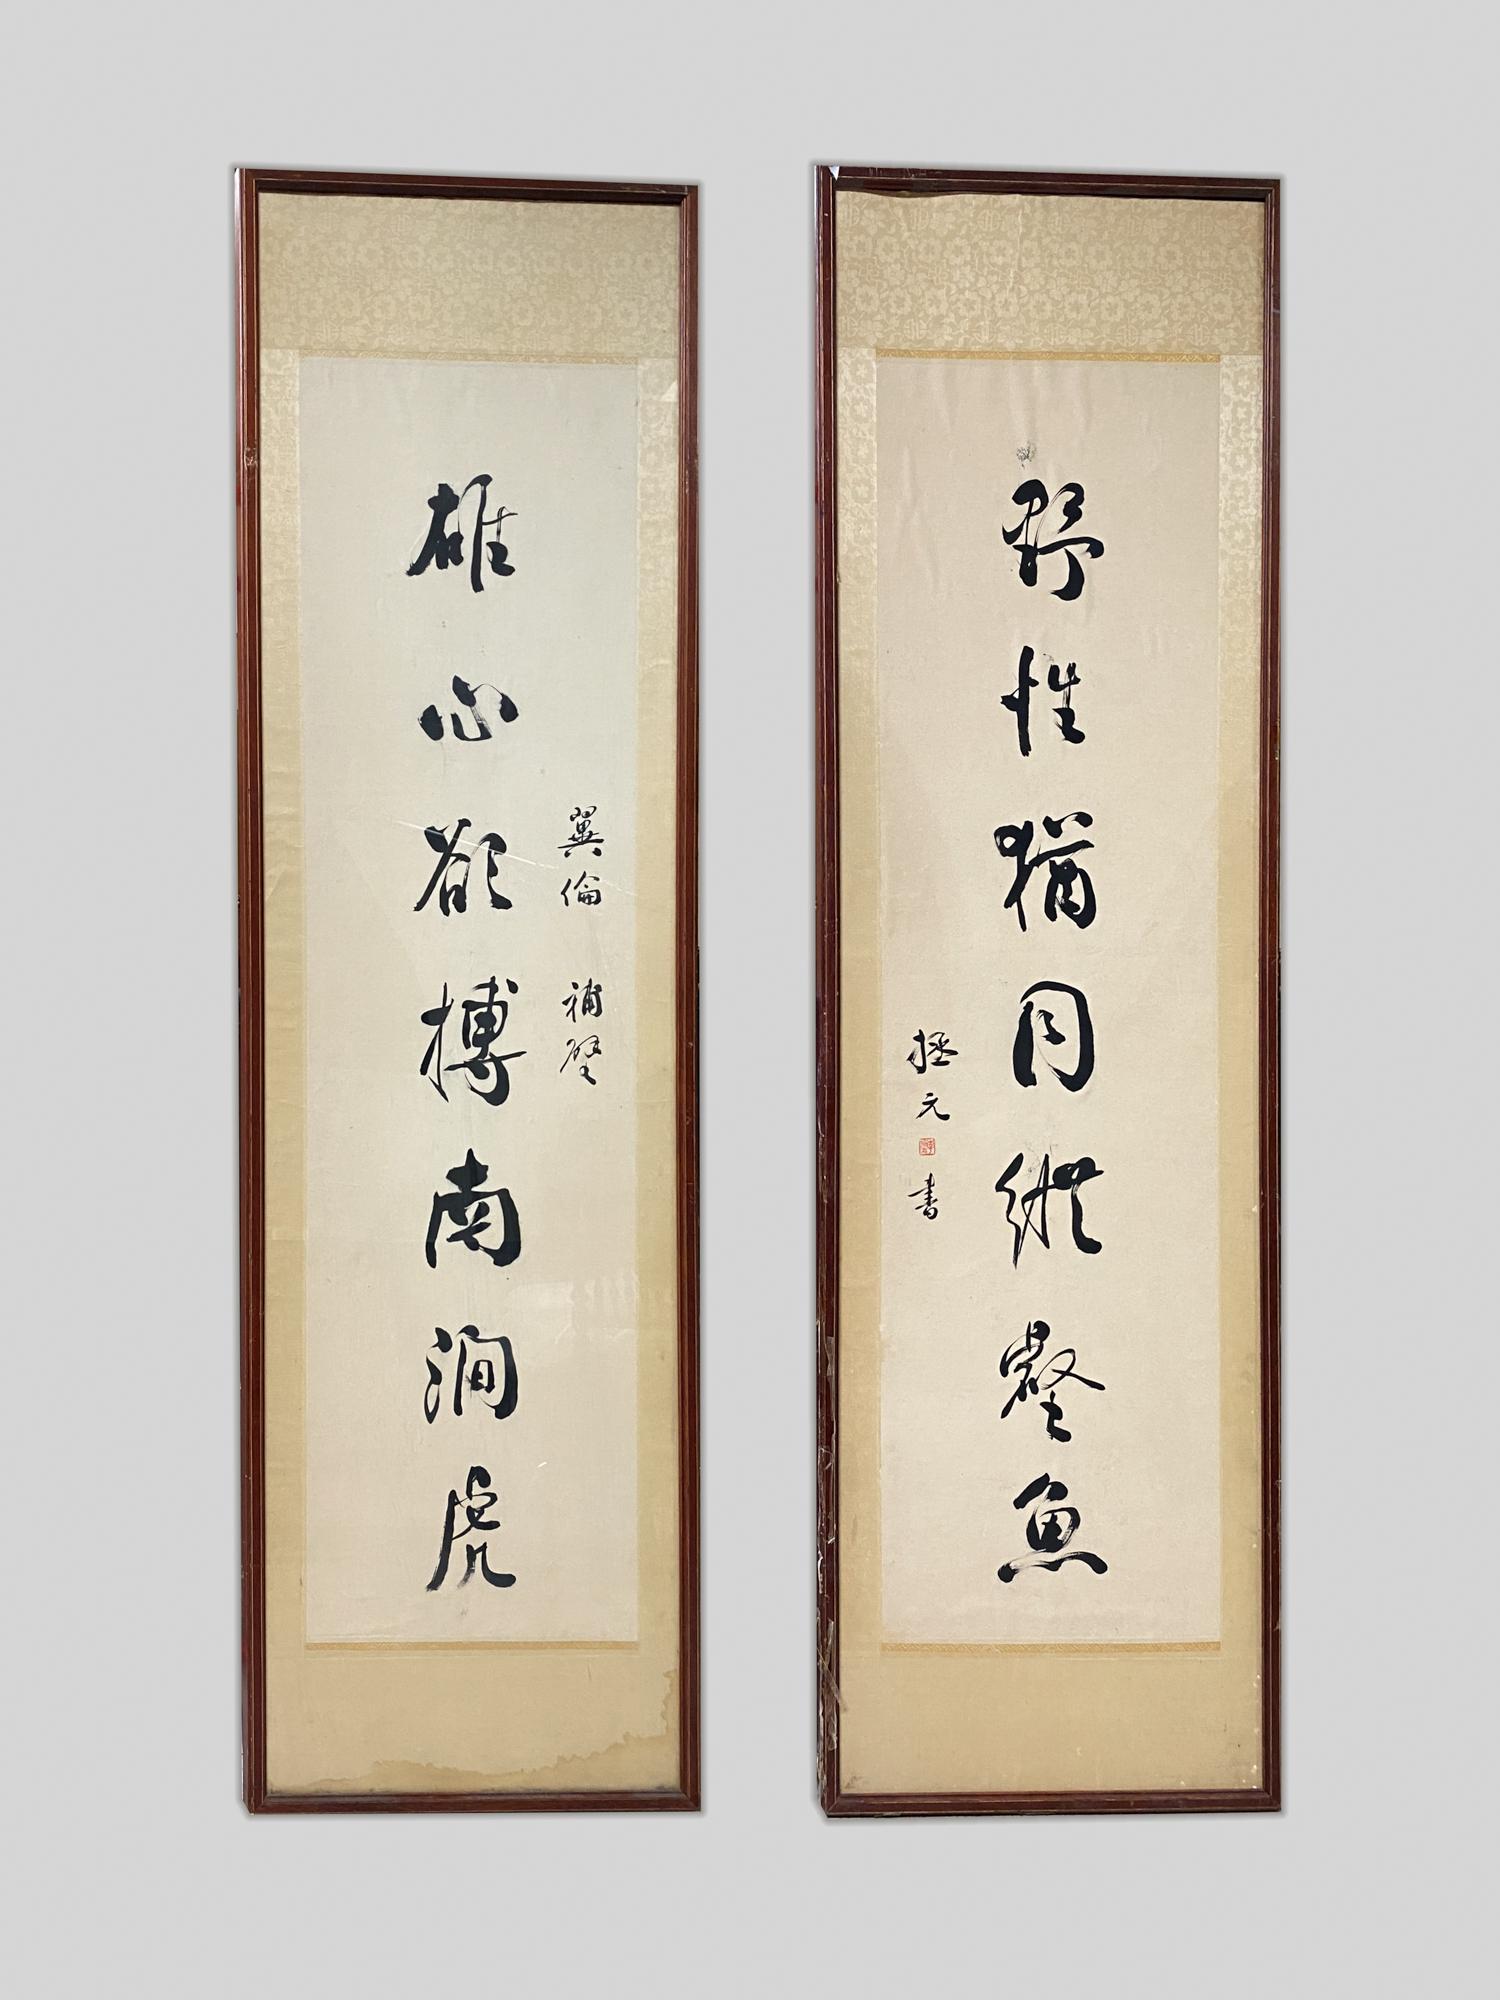 翼倫 補壁
雄心欲搏南澗虎
野性猶同縱壑魚
拯元 書